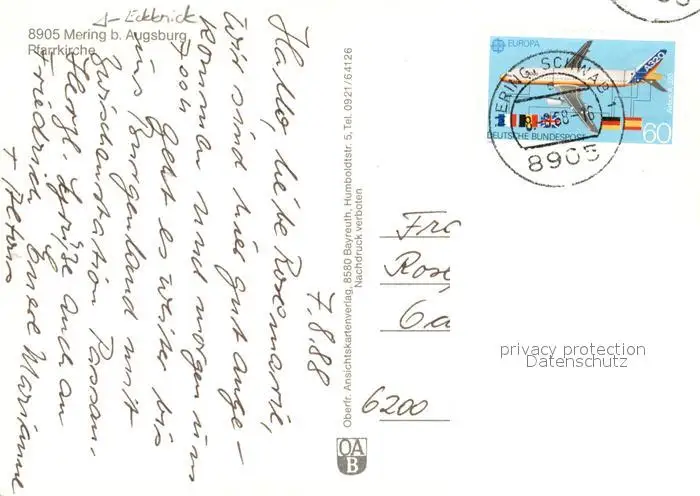 Eckbrick
8905 Mering b. Augsburg
Pfarrkirche
7.8.88
Hallo, liebe Rosemarie,
wir sind hier gut ange-
kommen und morgen um
7 00h geht es weiter bis
ins Burgenland mit
Zwischenstation Passau.
Herzl. Grüße auch an
Friedrich Eure Marianne
+ Stefan
Oberfr. Ansichtskartenverlag, 8580 Bayreuth, Humboldtstr. 5, Tel. 0921/64126
Nachdruck verboten
OA
B
EUROPA
A320
Airbus A320
DEUTSCHE BUNDESPOST
60
MERING, SCHWAB 1
8.8.88-16
8905
Fra
Rose
Ga
6200
privacy protection
Datenschutz